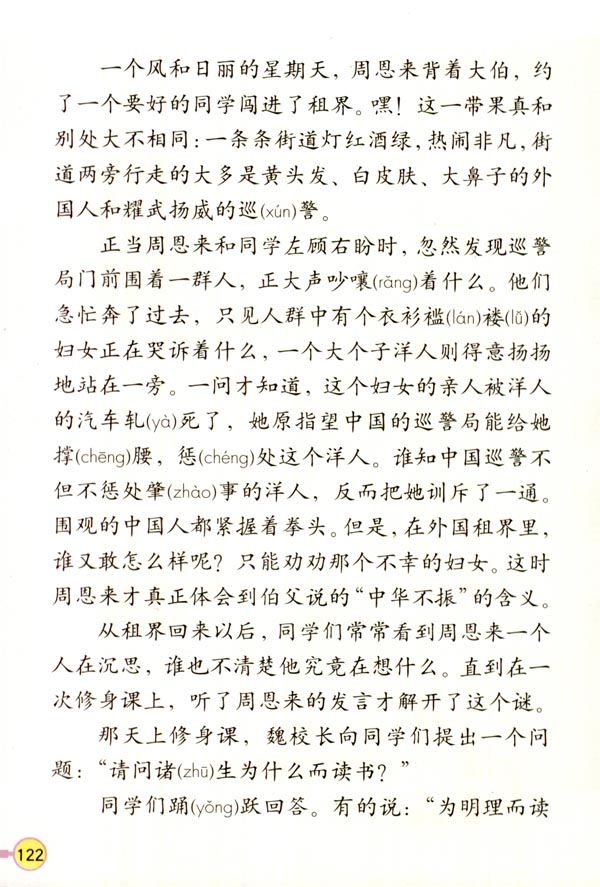 一个风和日丽的星期天，周恩来背着大伯，约
了一个要好的同学闯进了租界。嘿！这一带果真和
别处大不相同：一条条街道灯红酒绿，热闹非凡，街
道两旁行走的大多是黄头发、白皮肤、大鼻子的外
国人和耀武扬威的巡(xún)警。
正当周恩来和同学左顾右盼时，忽然发现巡警
局门前围着一群人，正大声吵嚷(rǎng)着什么。他们
急忙奔了过去，只见人群中有个衣衫褴(lán)褛(lǚ)的
妇女正在哭诉着什么，一个大个子洋人则得意扬扬
地站在一旁。一问才知道，这个妇女的亲人被洋人
的汽车轧(yà)死了，她原指望中国的巡警局能给她
撑(chēng)腰，惩(chéng)处这个洋人。谁知中国巡警不
但不惩处肇(zhào)事的洋人，反而把她训斥了一通。
围观的中国人都紧握着拳头。但是，在外国租界里，
谁又敢怎么样呢？只能劝劝那个不幸的妇女。这时
周恩来才真正体会到伯父说的“中华不振”的含义。
从租界回来以后，同学们常常看到周恩来一个
人在沉思，谁也不清楚他究竟在想什么。直到在一
次修身课上，听了周恩来的发言才解开了这个谜。
那天上修身课，魏校长向同学们提出一个问
题：“请问诸(zhū)生为什么而读书？”
同学们踊(yǒng)跃回答。有的说：“为明理而读
122